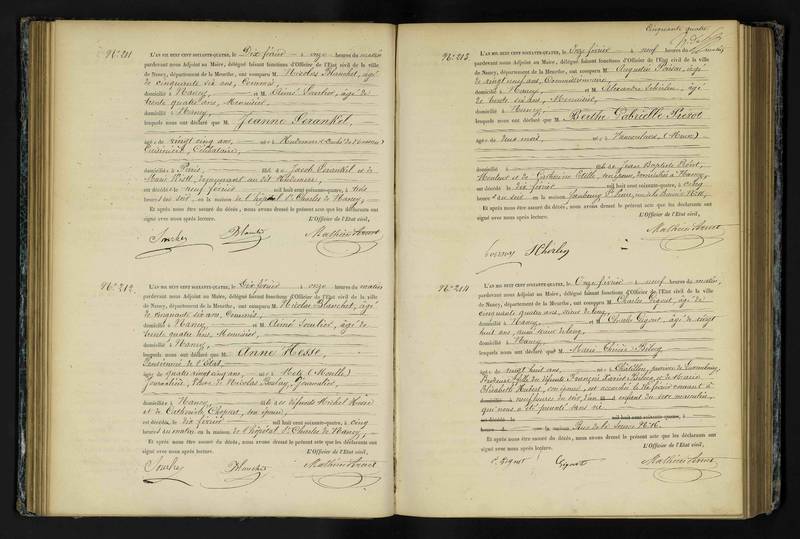 N° 211
L'AN MIL HUIT CENT SOIXANTE-QUATRE, le Dix février à onze heures du matin
pardevant nous Adjoint au Maire, délégué faisant fonctions d'Officier de l'Etat civil de la ville
de Nancy, département de la Meurthe, ont comparu M. Nicolas Blanchet, âgé
de cinquante six ans, Commis,
domicilié à Nancy, et M. Aimé Soulier, âgé de
trente quatre ans, Menuisier,
domicilié à Nancy,
lesquels nous ont déclaré que M. Jeanne
âgé e de vingt cinq ans, né e à
Célibataire,
domicilié e à Paris, fille de Jacob et de
est décédé e le neuf février mil huit cent soixante-quatre, à trois
heures du soir, en la maison de l'hôpital St Charles de Nancy,
Et après nous être assuré du décès, nous avons dressé le présent acte que les déclarants ont
signé avec nous après lecture. L'Officier de l'Etat civil,
Blanchet Mathieu
N° 212.
L'AN MIL HUIT CENT SOIXANTE-QUATRE, le Dix février à onze heures du matin
pardevant nous Adjoint au Maire, délégué faisant fonctions d'Officier de l'Etat civil de la ville
de Nancy, département de la Meurthe, ont comparu M. Nicolas Blanchet, âgé
de cinquante six ans, Commis,
domicilié à Nancy, et M. Aimé Soulier, âgé de
trente quatre ans, Menuisier,
domicilié à Nancy,
lesquels nous ont déclaré que M. Anne Hesse,
Pensionnée de l'Etat
âgé e de quatre vingt cinq ans, née à Metz (Moselle)
Journalière, Veuve de Nicolas Journalier,
domicilié e à Nancy, fille de défunts Michel Hesse
et de Catherine son épouse,
est décédé e le dix février mil huit cent soixante-quatre, à cinq
heures du matin en la maison de l'hôpital St Charles de Nancy,
Et après nous être assuré du décès, nous avons dressé le présent acte que les déclarants ont
signé avec nous après lecture. L'Officier de l'Etat civil,
Blanchet Mathieu
Cinquante quatre
N° 213.
L'AN MIL HUIT CENT SOIXANTE-QUATRE, le Onze février à neuf heures du matin
pardevant nous Adjoint au Maire, délégué faisant fonctions d'Officier de l'Etat civil de la ville
de Nancy, département de la Meurthe, ont comparu M. Augustin âgé
de vingt neuf ans, Commissionnaire,
domicilié à Nancy, et M. Alexandre âgé
de trente six ans, Menuisier,
domicilié à Nancy,
lesquels nous ont déclaré que M. Berthe Gabrielle
âgé e de deux mois, né e à Vaucouleurs (Meuse)
fille de Jean Baptiste
et de Catherine son épouse, domiciliés à Nancy,
est décédé e le dix février mil huit cent soixante-quatre, à cinq
heures du soir en la maison faubourg St Pierre,
Et après nous être assuré du décès, nous avons dressé le présent acte que les déclarants ont
signé avec nous après lecture. L'Officier de l'Etat civil,
Mathieu
N° 214
L'AN MIL HUIT CENT SOIXANTE-QUATRE, le Onze février à neuf heures du matin,
pardevant nous Adjoint au Maire, délégué faisant fonctions d'Officier de l'Etat civil de la ville
de Nancy, département de la Meurthe, ont comparu M. Charles Gigout, âgé de
cinquante quatre ans, scieur de long,
domicilié à Nancy, et M. Charles Gigout, âgé de vingt
huit ans, aussi scieur de long,
domicilié à Nancy,
lesquels nous ont déclaré que M. Marie Thérèse
âgé e de vingt huit ans, née à Châtillon, province de Luxembourg,
Brodeuse, fille de défunts François Xavier et de Marie
Elisabeth Hubert, son épouse, est accouchée le dix février courant à
neuf heures du soir, d'un enfant du sexe masculin,
qui nous a été présenté sans vie.
est décédé le mil huit cent soixante-quatre, à
heures d en la maison Rue de la Source N° 16.
Et après nous être assuré du décès, nous avons dressé le présent acte que les déclarants ont
signé avec nous après lecture. L'Officier de l'Etat civil,
C. Gigout Gigout Mathieu